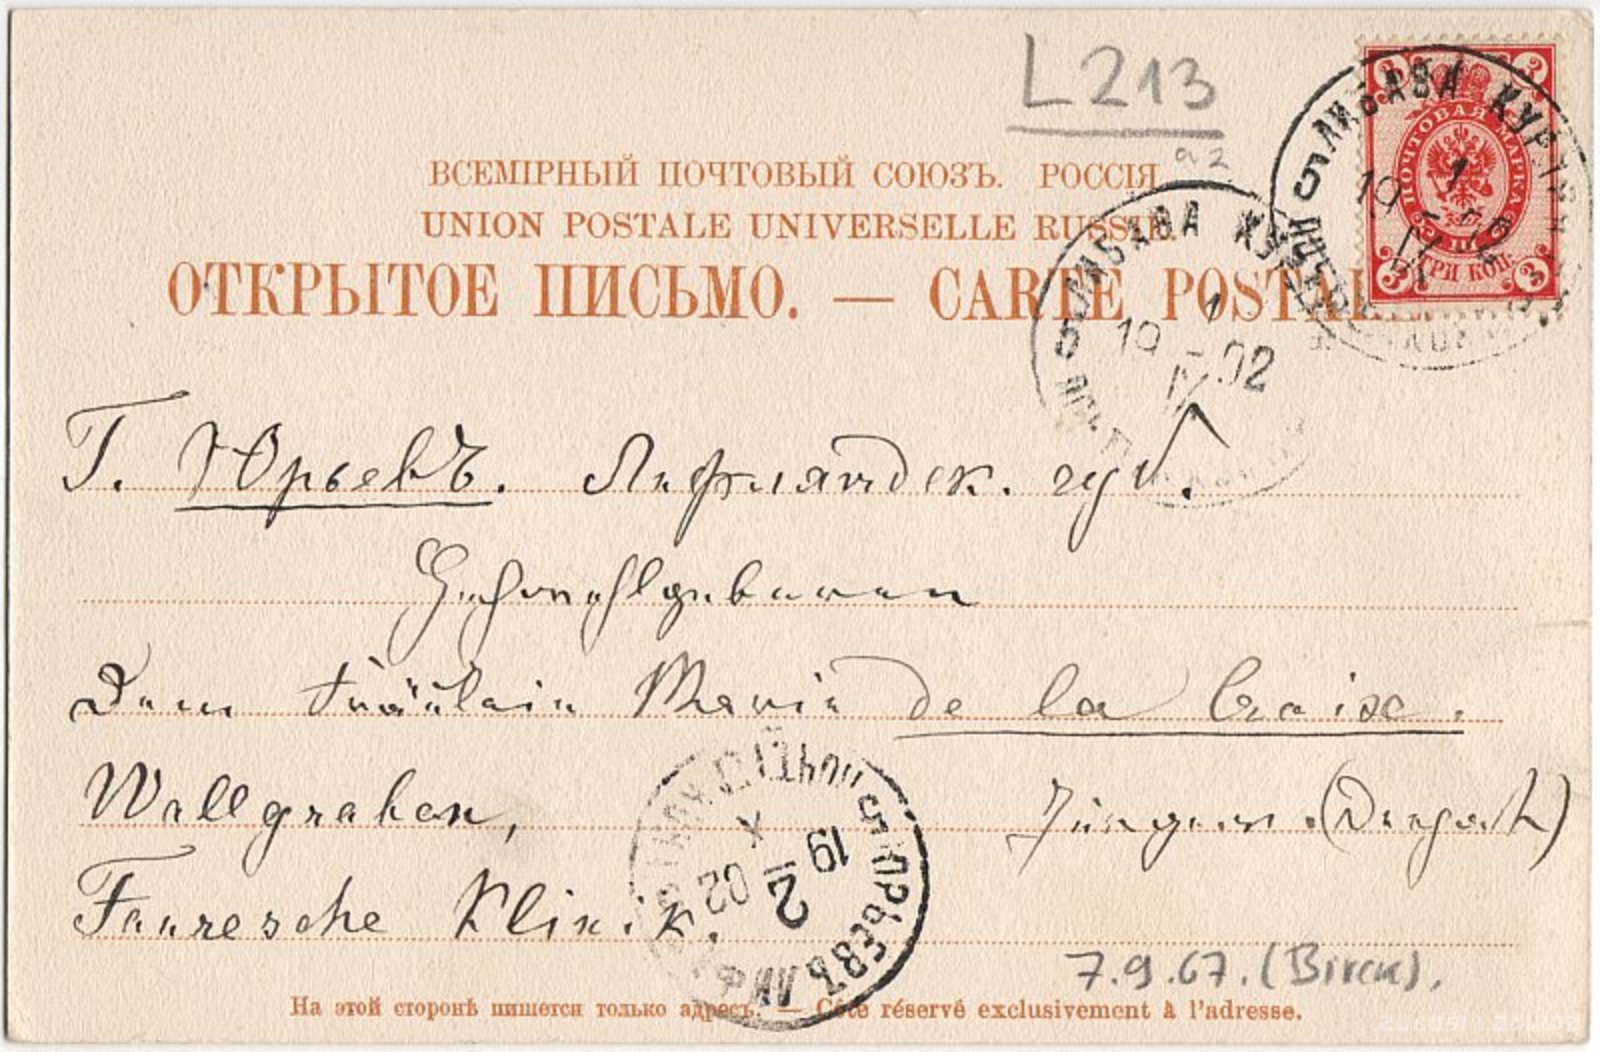 L 213
ВСЕМІРНЫЙ ПОЧТОВЫЙ СОЮЗЪ. РОССІЯ
UNION POSTALE UNIVERSELLE RUSSIE.
ОТКРЫТОЕ ПИСЬМО. — CARTE POSTALE
ПОЧТОВАЯ МАРКА
ТРИ КОП.
ЛИБАВА КУРЛЯН
1 IX 1902
ЛИБАВА КУР
1 IX 1902
Г. Юрьевъ. Лифляндск. губ.
Hochwohlgeboren
Dem Fräulein Marie de la Croix.
Wallgraben,
Fauresche Klinik.
ЮРЬЕВЪ ЛИФ
2 IX 1902
7.9.67.
На этой сторонѣ пишется только адресъ. — Côté réservé exclusivement à l'adresse.